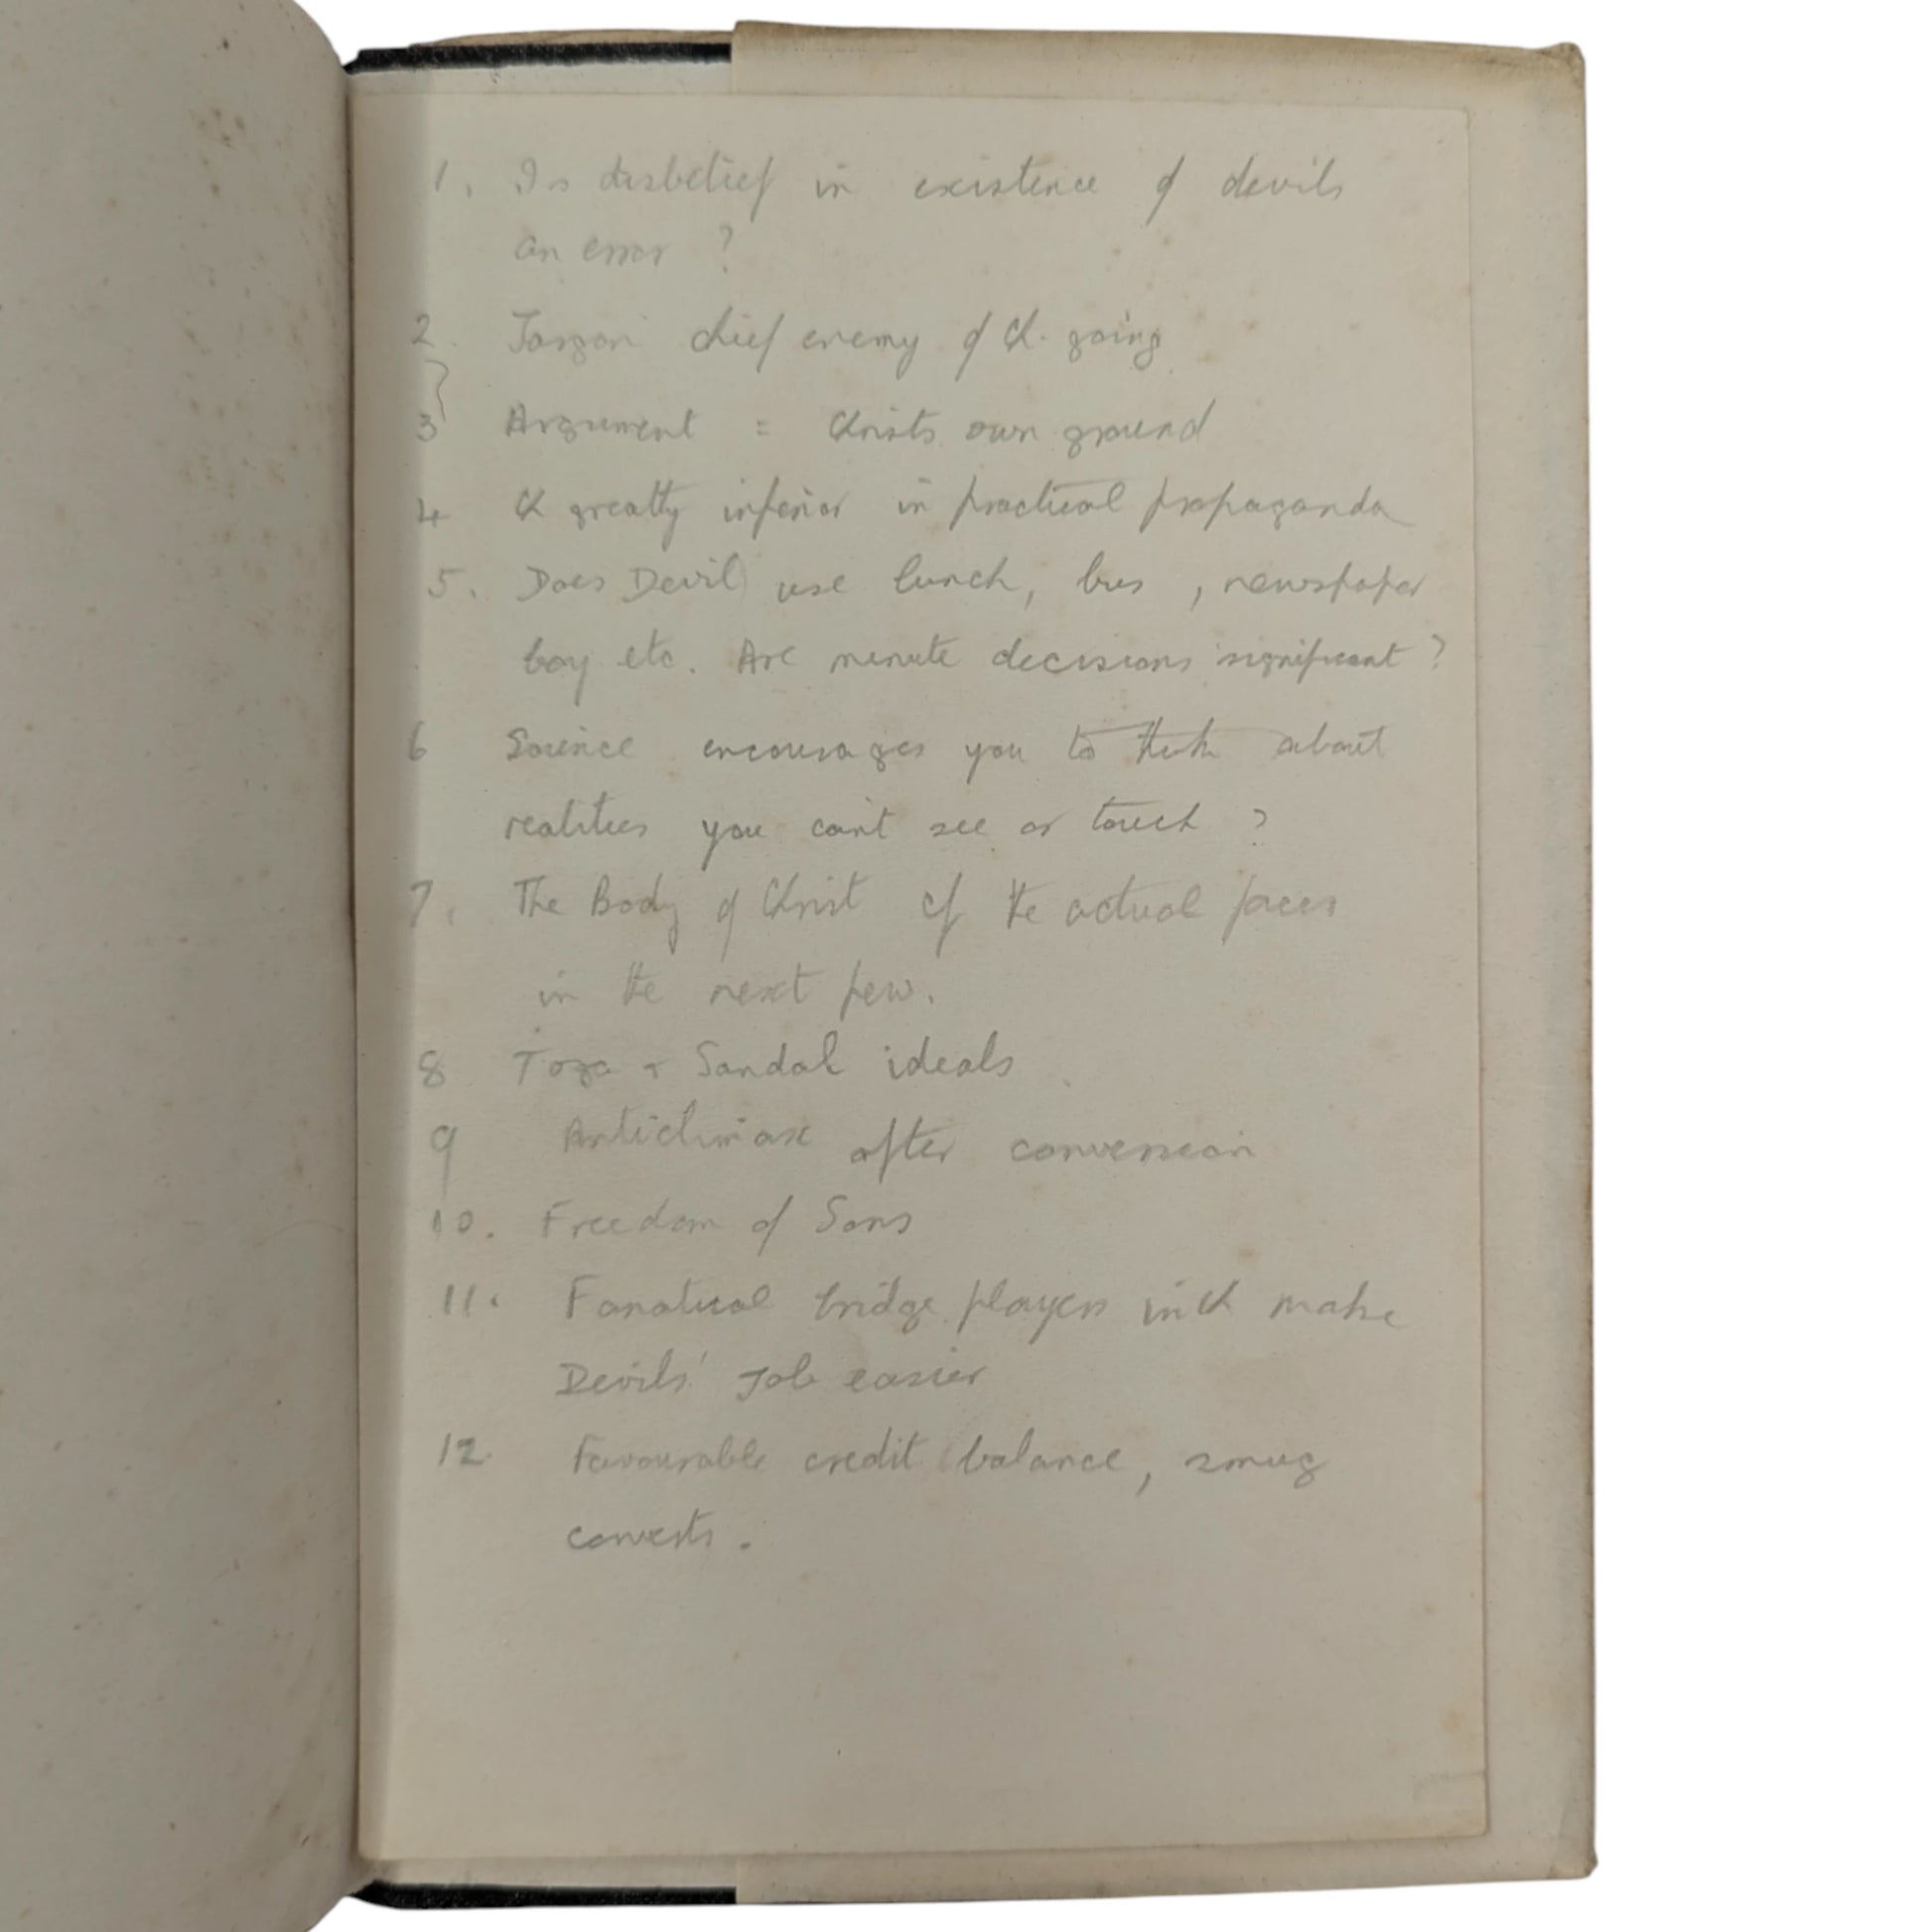 1. Is disbelief in existence of devils
an error ?
2. Jargon chief enemy of Ch. going
3 Argument = Christs own ground
4 Ch greatly inferior in practical propaganda
5. Does Devil use lunch, bus , newspaper
boy etc. Are minute decisions significant ?
6 Science encourages you to think about
realities you can't see or touch ?
7. The Body of Christ cf the actual faces
in the next pew.
8 Toga + Sandal ideals
9 Anticlimax after conversion
10. Freedom of Sons
11. Fanatical bridge players in Ch make
Devils' Job easier
12. Favourable credit balance, smug
converts.